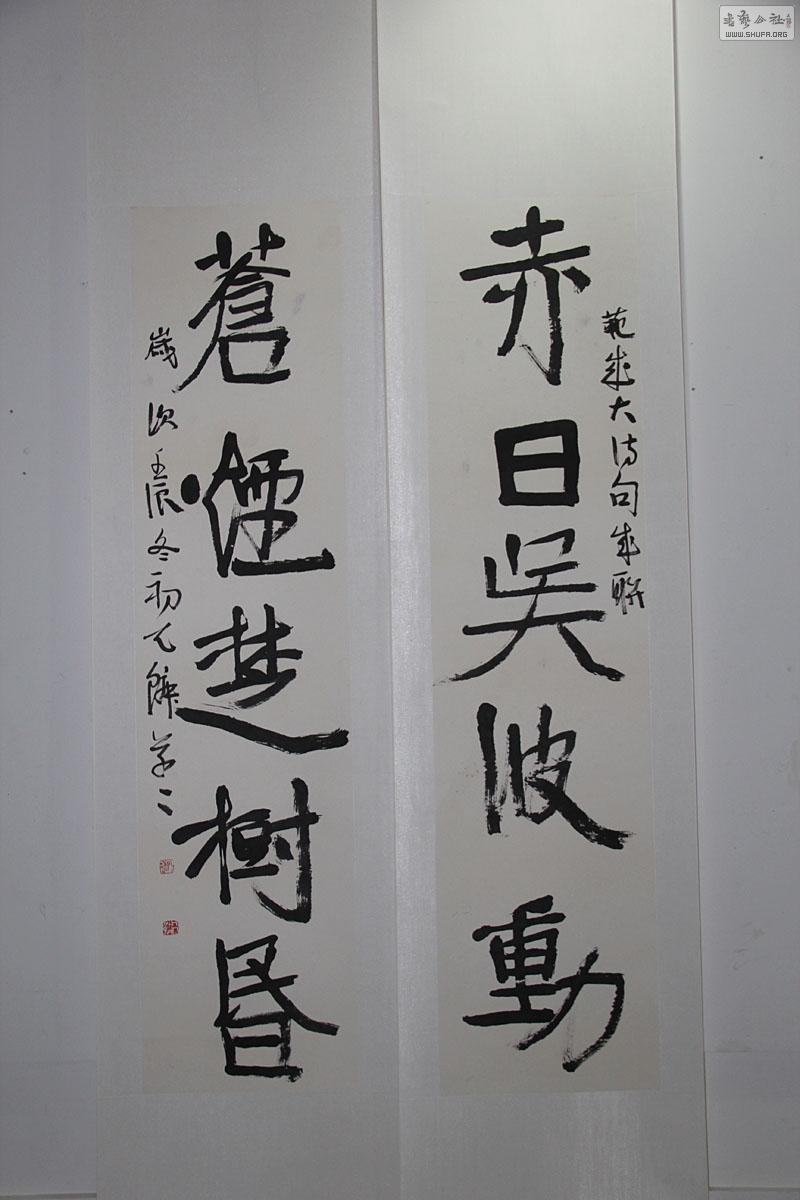 范成大诗句成聯
赤日吳波動
蒼煙楚樹昏
歲次壬辰冬初
书艺公社
WWW.SHUFA.ORG